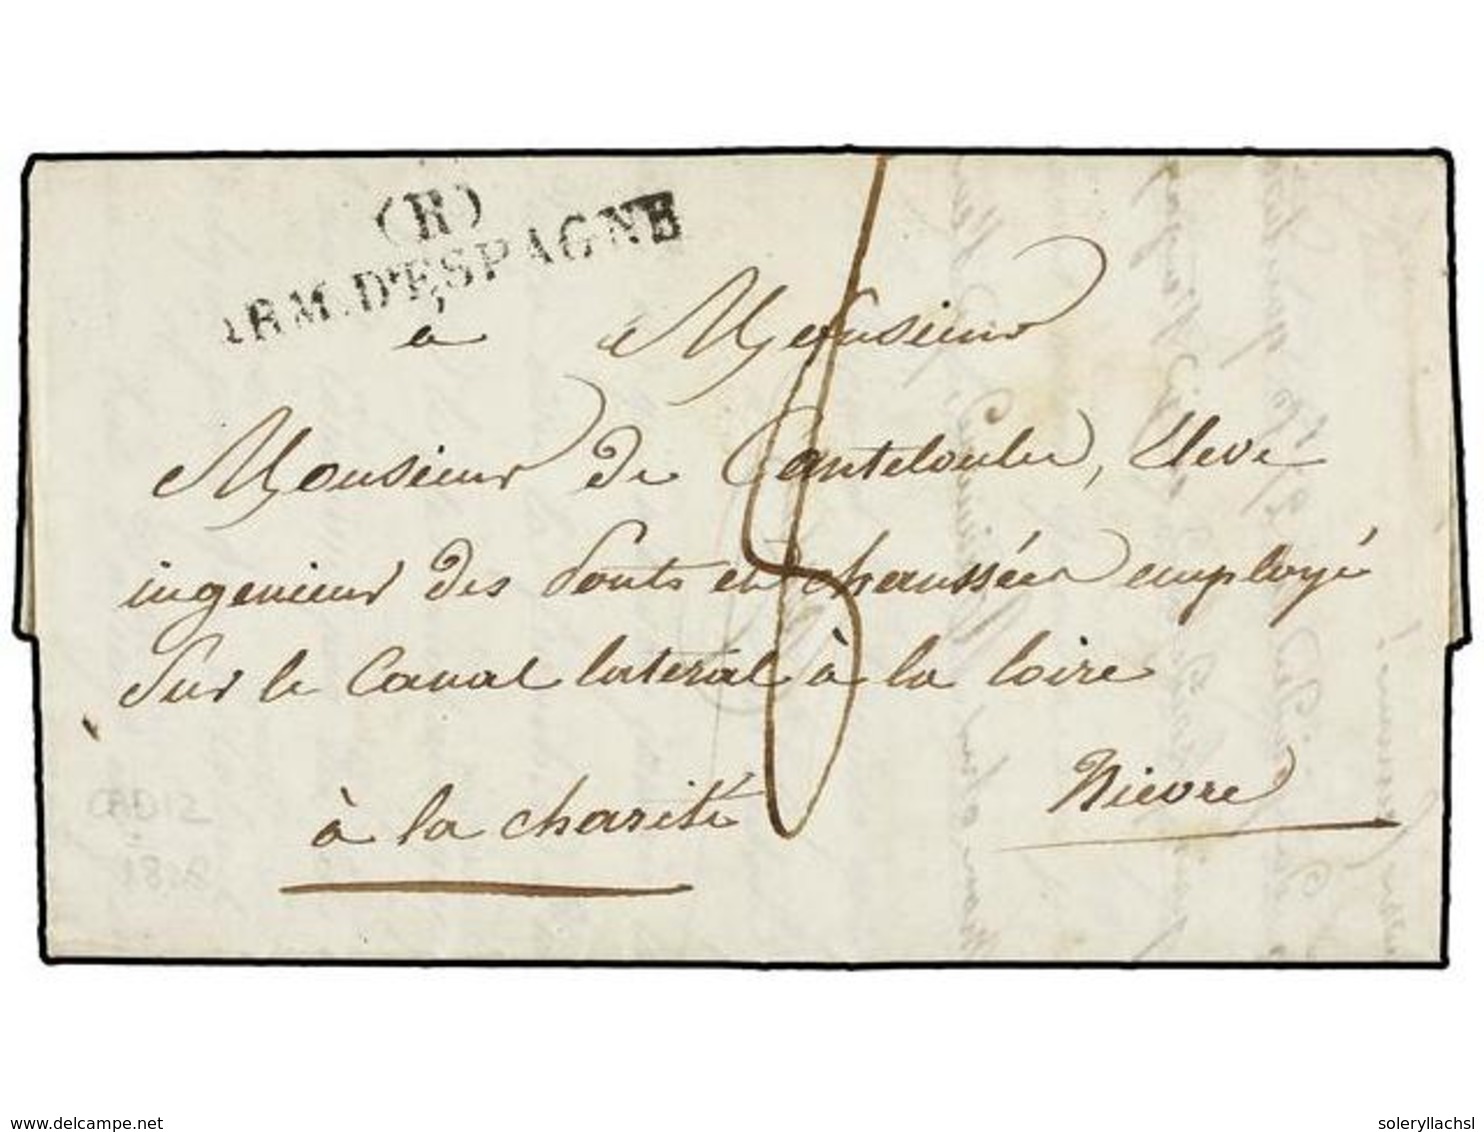 (R)
ARM. D'ESPAGNE
a Monsieur
Monsieur de Canteloube, Eleve
ingenieur des Ponts et chaussées employé
Sur le Canal lateral à la loire
à la charité
Nievre
CADIZ
delcampe.net
soleryllachsl